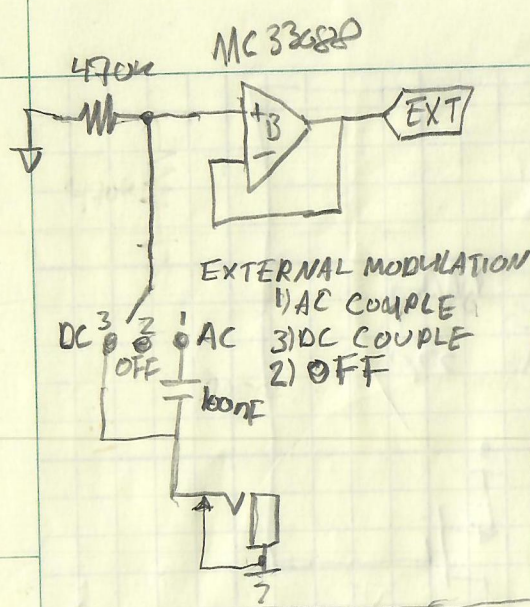 MC33088
470K
+
B
-
EXT
EXTERNAL MODULATION
1) AC COUPLE
3) DC COUPLE
2) OFF
DC 3 2 1 AC
OFF
100nF